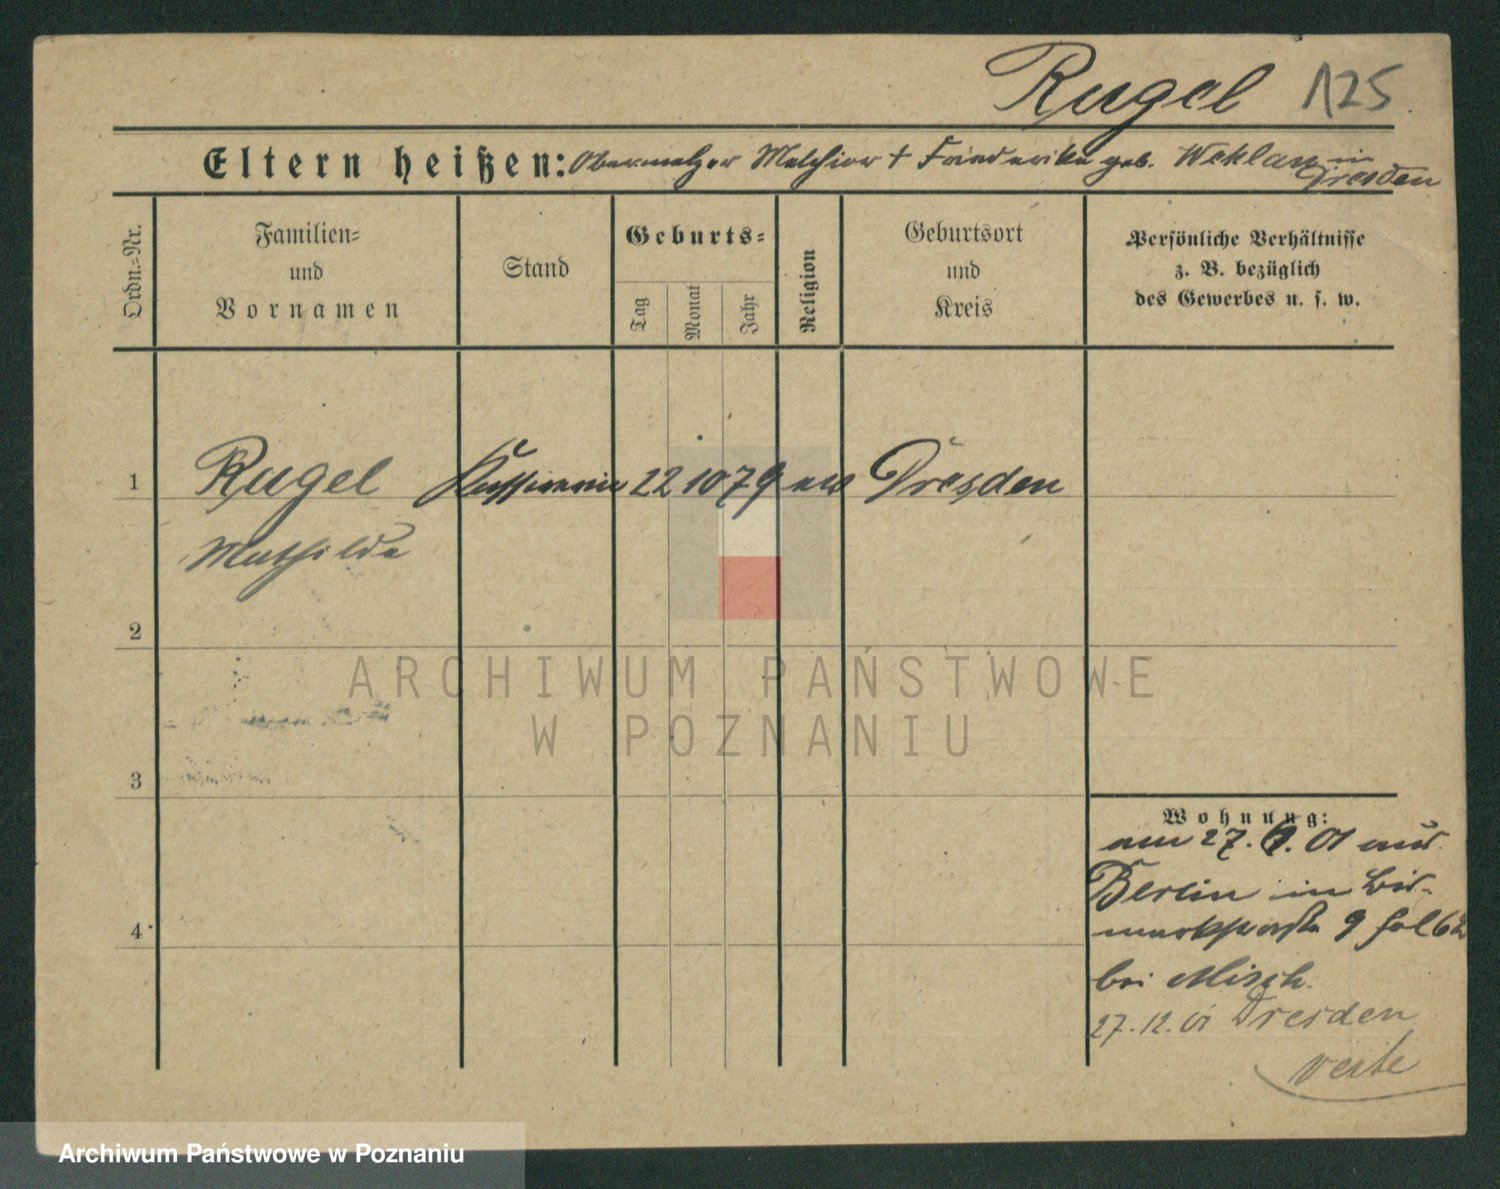 Rugel 125
Eltern heißen: Obermelzer Melchior + Friederike geb. Weklau in
Dresden
Ordn.=Nr.
Familien=
und
Vornamen
Stand
Geburts=
Tag
Monat
Jahr
Religion
Geburtsort
und
Kreis
Persönliche Verhältnisse
z. B. bezüglich
des Gewerbes u. s. w.
1 Rugel Kassiererin 22 10 79 ev Dresden
Mathilde
2
3
4
Wohnung:
am 27. 01 aus
Berlin in Bis-
markstraße 9
bei Misch.
27.12.01 Dresden
verte
ARCHIWUM PAŃSTWOWE
W POZNANIU
Archiwum Państwowe w Poznaniu